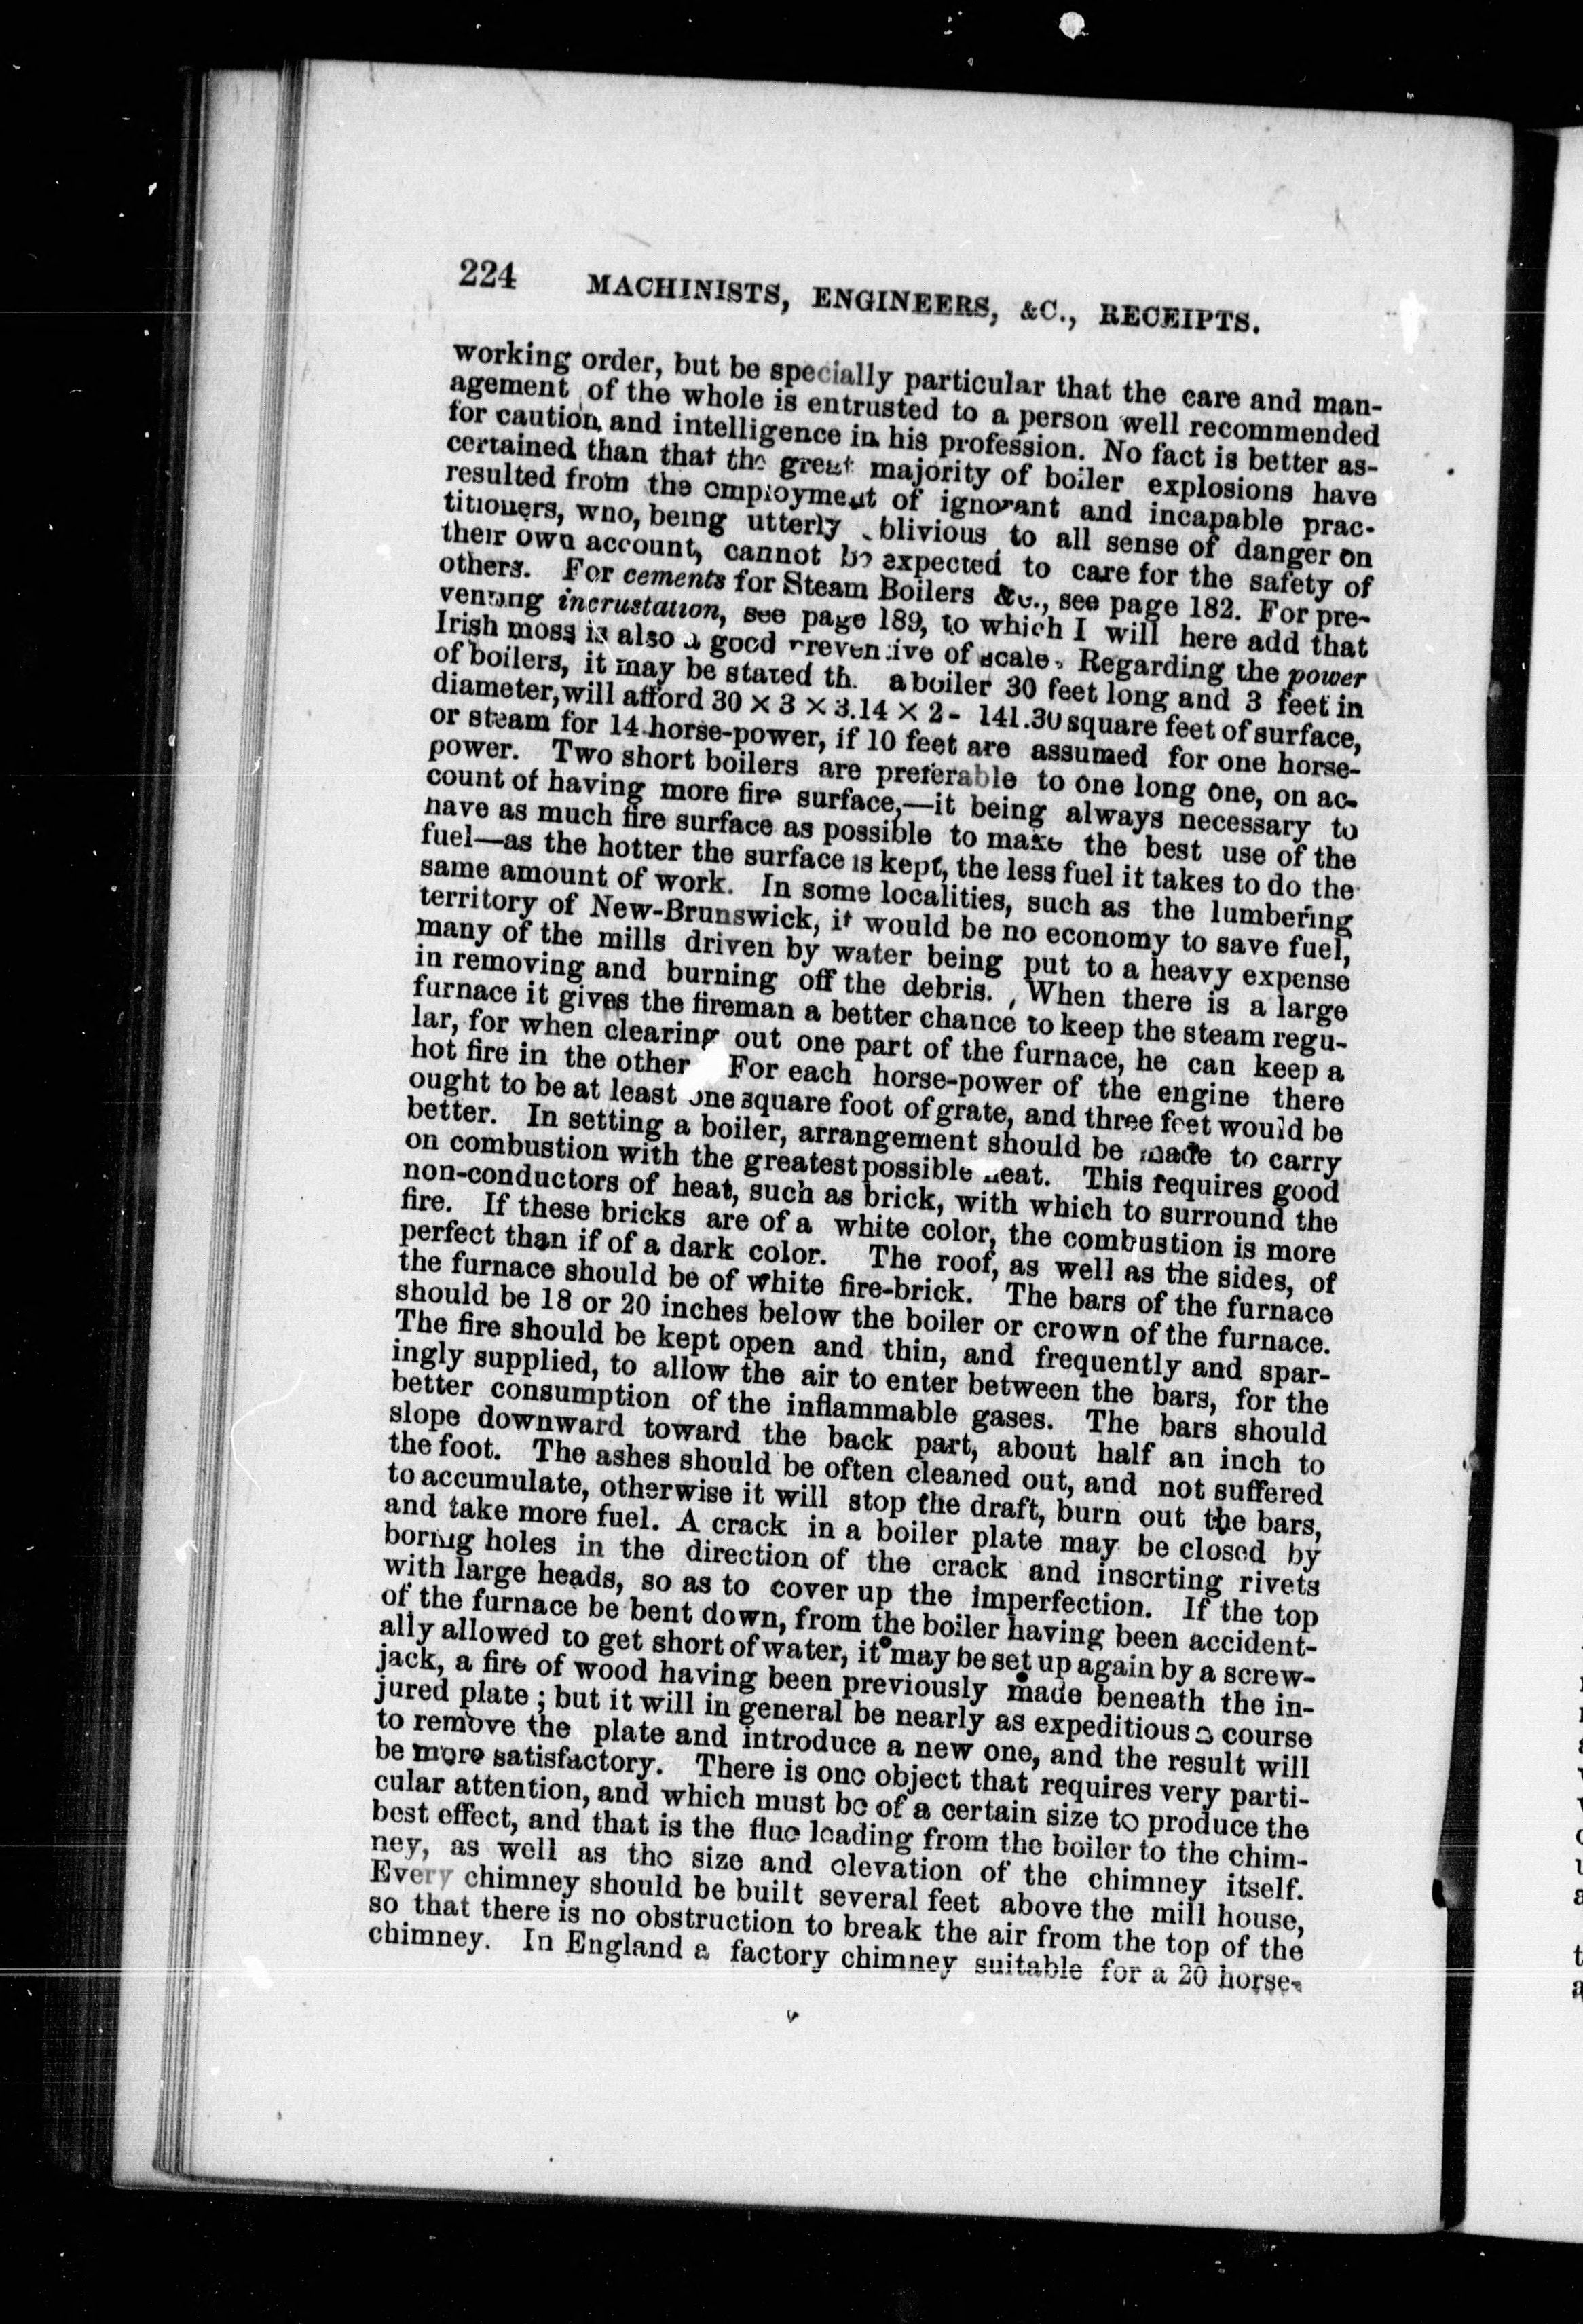 224 MACHINISTS, ENGINEERS, &C., RECEIPTS.
working order, but be specially particular that the care and man-
agement of the whole is entrusted to a person well recommended
for caution and intelligence in his profession. No fact is better as-
certained than that the great majority of boiler explosions have
resulted from the employment of ignorant and incapable prac-
titioners, who, being utterly oblivious to all sense of danger on
their own account, cannot be expected to care for the safety of
others. For cements for Steam Boilers &c., see page 182. For pre-
venting incrustation, see page 189, to which I will here add that
Irish moss is also a good preventive of scale. Regarding the power
of boilers, it may be stated th. a boiler 30 feet long and 3 feet in
diameter, will afford 30 × 3 × 3.14 × 2 - 141.30 square feet of surface,
or steam for 14 horse-power, if 10 feet are assumed for one horse-
power. Two short boilers are preferable to one long one, on ac-
count of having more fire surface,—it being always necessary to
have as much fire surface as possible to make the best use of the
fuel—as the hotter the surface is kept, the less fuel it takes to do the
same amount of work. In some localities, such as the lumbering
territory of New-Brunswick, it would be no economy to save fuel,
many of the mills driven by water being put to a heavy expense
in removing and burning off the debris. When there is a large
furnace it gives the fireman a better chance to keep the steam regu-
lar, for when clearing out one part of the furnace, he can keep a
hot fire in the other For each horse-power of the engine there
ought to be at least one square foot of grate, and three feet would be
better. In setting a boiler, arrangement should be made to carry
on combustion with the greatest possible heat. This requires good
non-conductors of heat, such as brick, with which to surround the
fire. If these bricks are of a white color, the combustion is more
perfect than if of a dark color. The roof, as well as the sides, of
the furnace should be of white fire-brick. The bars of the furnace
should be 18 or 20 inches below the boiler or crown of the furnace.
The fire should be kept open and thin, and frequently and spar-
ingly supplied, to allow the air to enter between the bars, for the
better consumption of the inflammable gases. The bars should
slope downward toward the back part, about half an inch to
the foot. The ashes should be often cleaned out, and not suffered
to accumulate, otherwise it will stop the draft, burn out the bars,
and take more fuel. A crack in a boiler plate may be closed by
boring holes in the direction of the crack and inserting rivets
with large heads, so as to cover up the imperfection. If the top
of the furnace be bent down, from the boiler having been accident-
ally allowed to get short of water, it may be set up again by a screw-
jack, a fire of wood having been previously made beneath the in-
jured plate; but it will in general be nearly as expeditious a course
to remove the plate and introduce a new one, and the result will
be more satisfactory. There is one object that requires very parti-
cular attention, and which must be of a certain size to produce the
best effect, and that is the flue leading from the boiler to the chim-
ney, as well as the size and elevation of the chimney itself.
Every chimney should be built several feet above the mill house,
so that there is no obstruction to break the air from the top of the
chimney. In England a factory chimney suitable for a 20 horse-